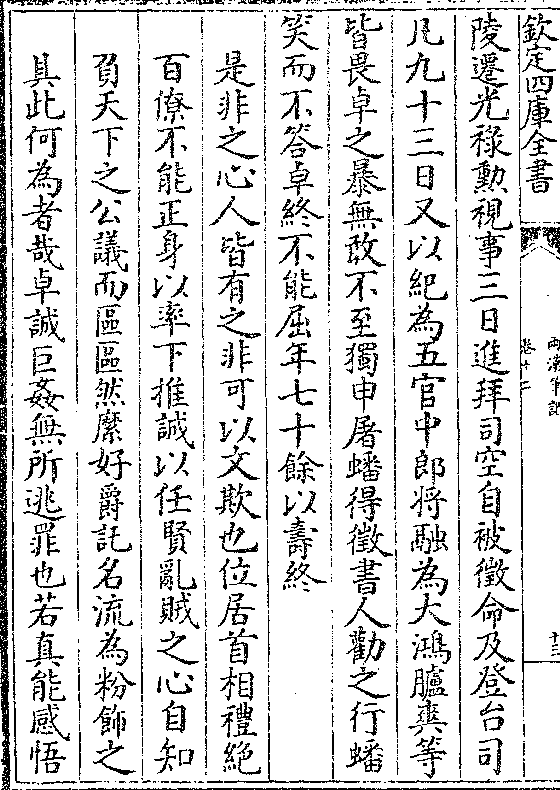 欽定四庫全書
兩漢筆記
卷十二
十三
陵遷光祿勲視事三日進拜司空自被徵命及登台司
凡九十三日又以紀為五官中郎将融為大鴻臚爽等
皆畏卓之暴無敢不至獨申屠蟠得徵書人勸之行蟠
笑而不答卓終不能屈年七十餘以壽終
是非之心人皆有之非可以文欺也位居首相禮絶
百僚不能正身以率下推誠以任賢亂賊之心自知
負天下之公議而區區然縻好爵託名流為粉飾之
具此何為者哉卓誠巨姦無所逃罪也若真能感悟